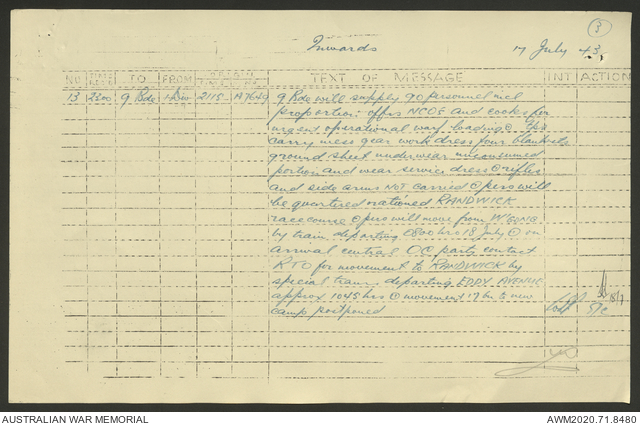 3
Inwards 17 July 43
NO TIME TO FROM ORIGIN TEXT OF MESSAGE INT ACTION
13 2200 9 Bde 1 Div 2115 A7649 9 Bde will supply 90 personnel incl
proportion offrs NCOs and cooks for
urgent operational wagon loading @ tps
carry mess gear work dress four blankets
ground sheet underwear unconsumed
portion and wear service dress @ rifles
and side arms NOT carried @ pers will
be quartered rationed RANDWICK
racecourse @ pers will move from W'GONG
by train departing 0800 hrs 18 July @ on
arrival central O.C. party contact
RTO for movement to RANDWICK by
special tram departing EDDY AVENUE
approx 1045 hrs @ movement 17 bn to new
camp postponed
18/7
AUSTRALIAN WAR MEMORIAL AWM2020.71.8480